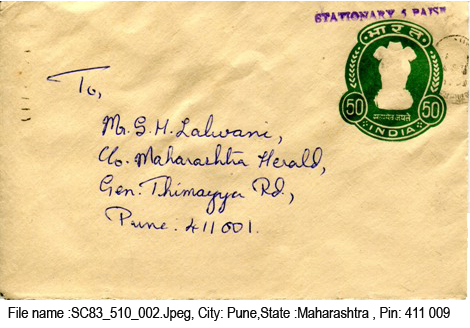 STATIONARY 5 PAISE
भारत
50 50
सत्यमेव जयते
INDIA
To,
Mr. G. H. Lalwani,
C/o. Maharashtra Herald,
Gen. Thimayya Rd.,
Pune. 411001.
File name :SC83_510_002.Jpeg, City: Pune,State :Maharashtra , Pin: 411 009